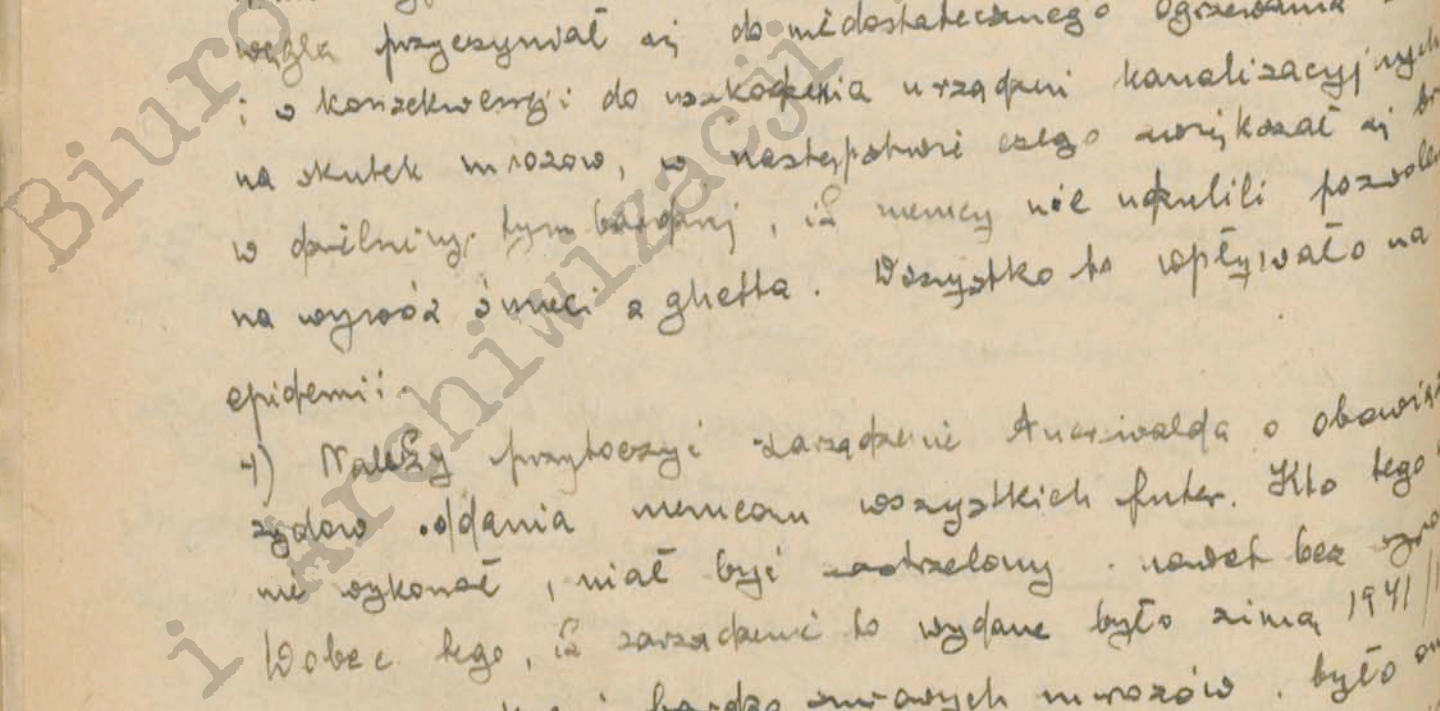 węgla przyczyniał się do niedostatecznego ogrzewania
i w konsekwencji do uszkodzenia urządzeń kanalizacyjnych
na skutek mrozow, w następstwie czego zwiększał się
w dzielnicy. tym bardziej, iż niemcy nie udzielili
na wywóz śmieci z ghetta. Wszystko to wpływało na
epidemii.
4) Należy przytoczyć zarządzenie Auerswalda o
żydow oddania niemcom wszystkich futer. Kto tego
nie wykonał, miał być zastrzelony. nawet bez
Wobec tego, iż zarządzenie to wydane było zimą 1941
bardzo mrozów, było
Biuro
i Archiwizacji